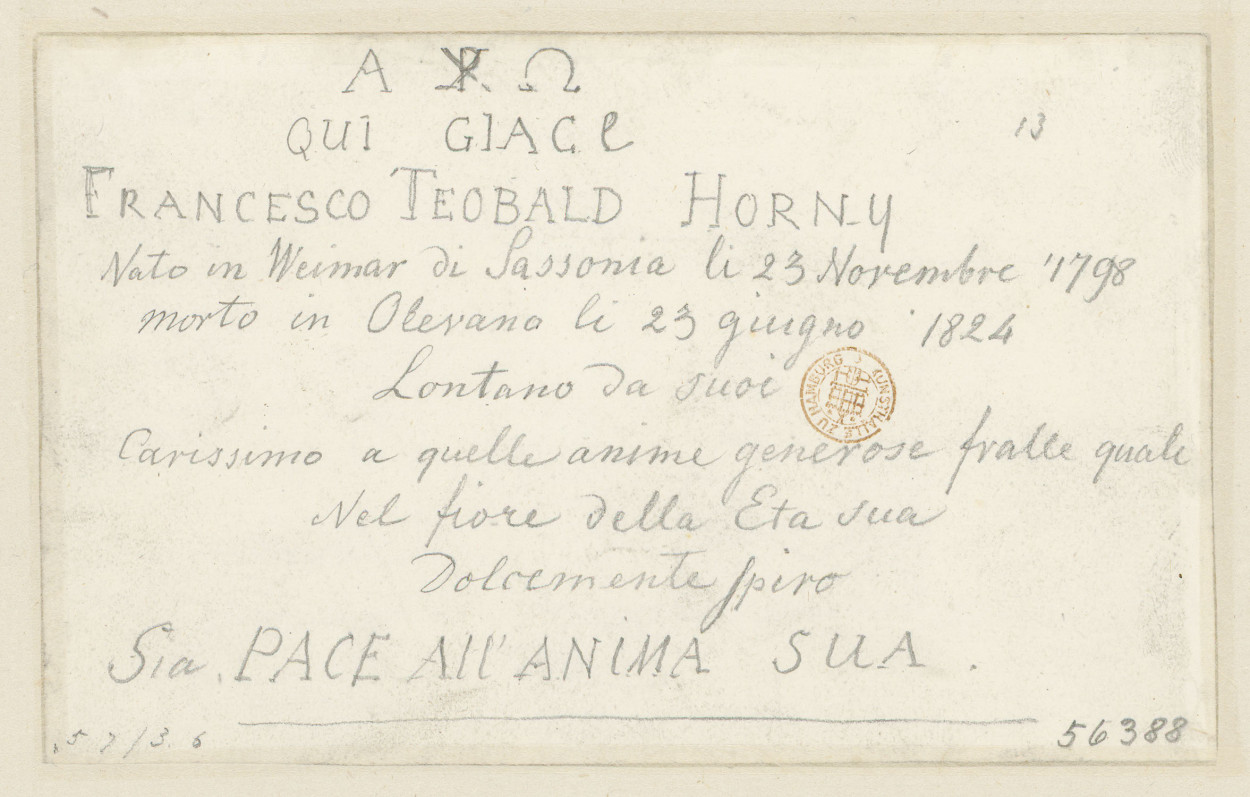 A ☧ Ω
QUI GIACE
13
FRANCESCO TEOBALD HORNY
Nato in Weimar di Sassonia li 23 Novembre 1798
morto in Olevano li 23 giugno 1824
Lontano da suoi
KUNSTHALLE ZU HAMBURG
Carissimo a quelle anime generose fralle quale
Nel fiore della Eta sua
Dolcemente spiro
Sia PACE All' ANIMA SUA.
56388